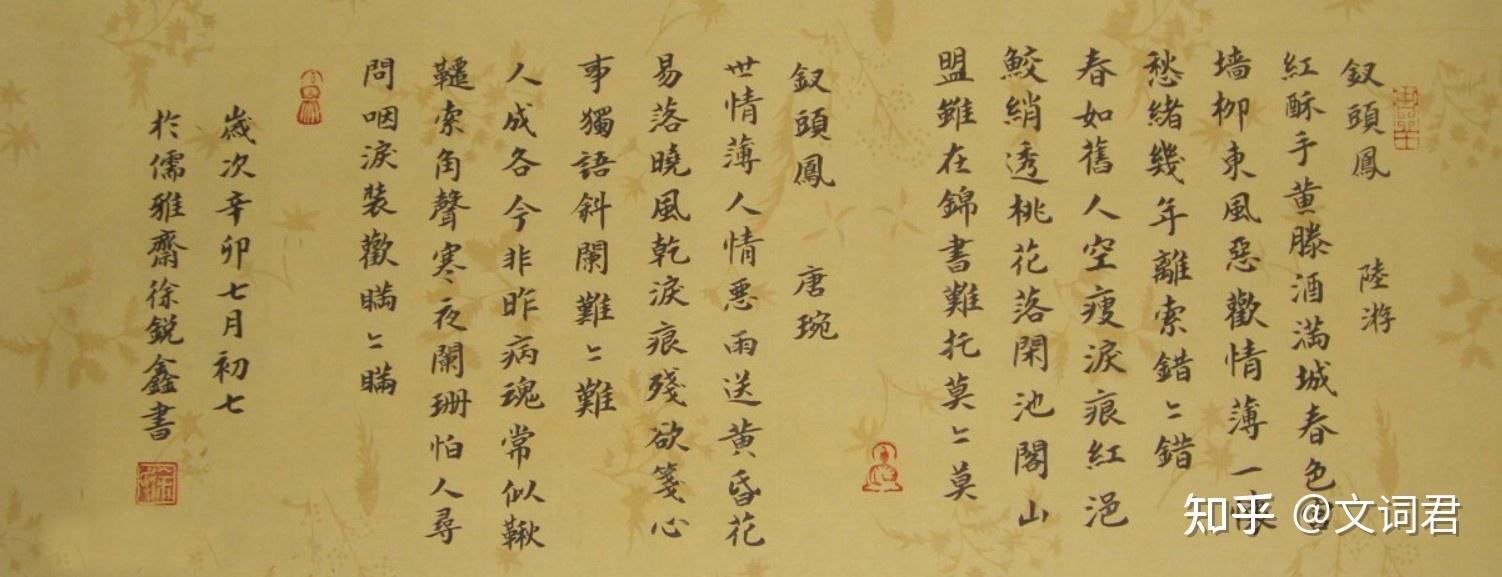 釵頭鳳　陸游
紅酥手黄滕酒滿城春色
墙柳東風惡歡情薄一
愁緒幾年離索錯〻錯
春如舊人空瘦淚痕紅浥
鮫綃透桃花落閑池閣山
盟雖在錦書難托莫〻莫
釵頭鳳　唐琬
世情薄人情惡雨送黄昏花
易落曉風乾淚痕殘欲箋心
事獨語斜闌難〻難
人成各今非昨病魂常似鞦
韆索角聲寒夜闌珊怕人尋
問咽淚裝歡瞞〻瞞
歲次辛卯七月初七
於儒雅齋徐銳鑫書
知乎 @文词君